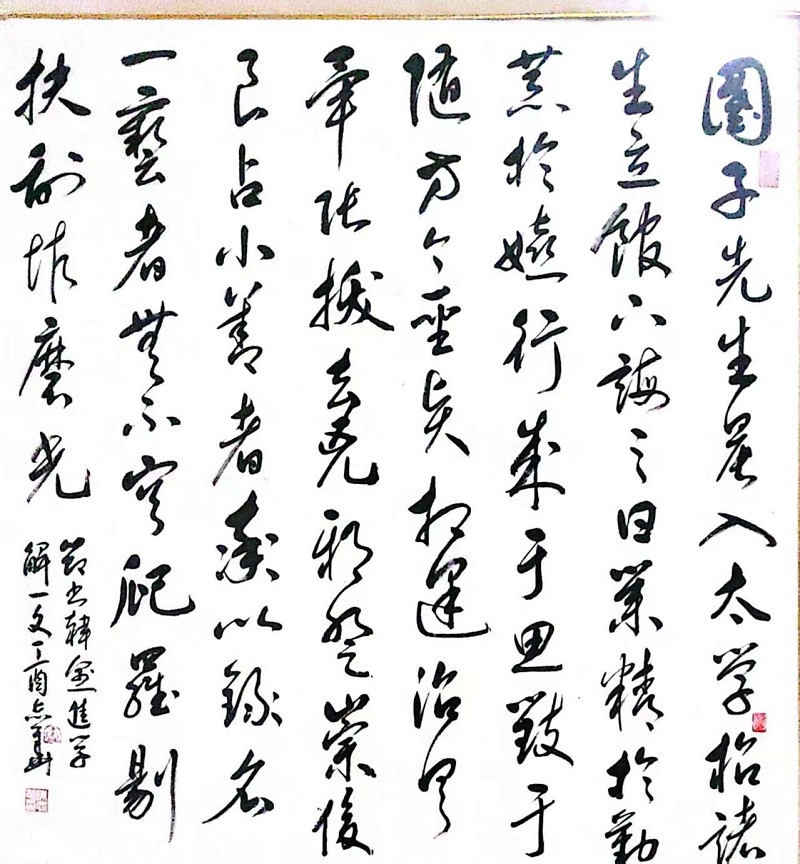 國子先生晨入太学招諸
生立館下誨之曰業精於勤
荒於嬉行成于思毀于
随方今聖賢相逢治具
畢張拔去兇邪登崇俊
良占小善者率以錄名
一藝者無不庸爬羅剔
抉刮垢磨光
節書韓愈進学
解一文丁酉